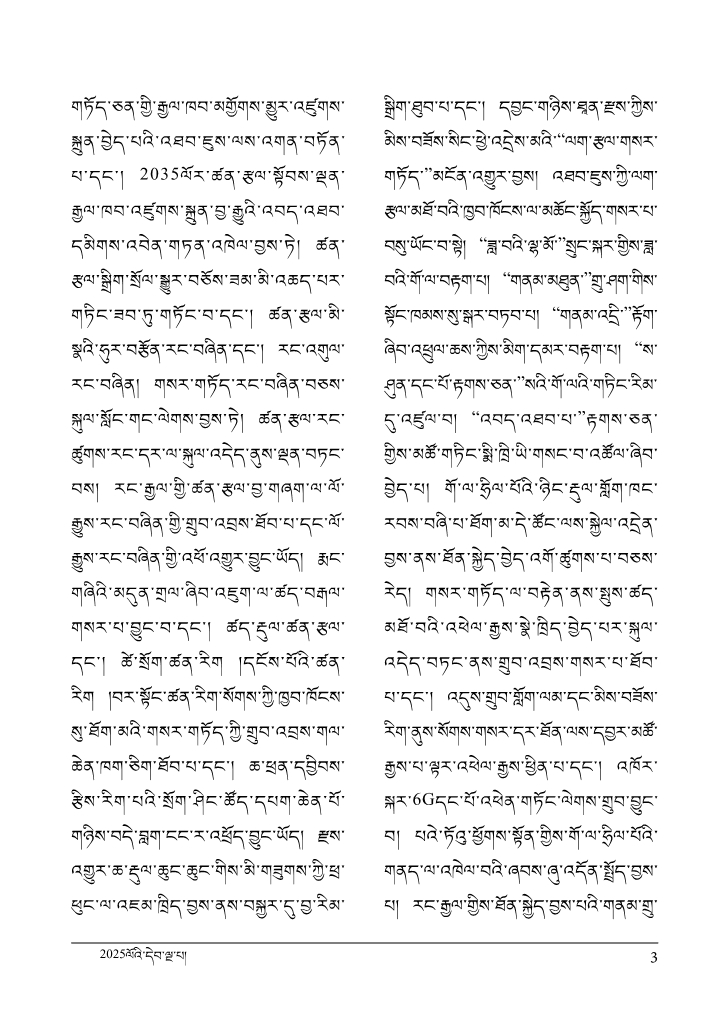 གཏོད་ཅན་གྱི་རྒྱལ་ཁབ་མགྱོགས་མྱུར་འཛུགས་
སྐྲུན་བྱེད་པའི་འཐབ་ཇུས་ལས་འགན་བཏོན་
པ་དང་། 2035ལོར་ཚན་རྩལ་སྟོབས་ལྡན་
རྒྱལ་ཁབ་འཛུགས་སྐྲུན་བྱ་རྒྱུའི་འབད་འཐབ་
དམིགས་འབེན་གཏན་འཁེལ་བྱས་ཏེ། ཚན་
རྩལ་སྒྲིག་སྲོལ་སྒྱུར་བཅོས་ཟམ་མི་འཆད་པར་
གཏིང་ཟབ་ཏུ་གཏོང་བ་དང་། ཚན་རྩལ་མི་
སྣའི་ཧུར་བརྩོན་རང་བཞིན་དང་། རང་འགུལ་
རང་བཞིན། གསར་གཏོད་རང་བཞིན་བཅས་
སྐུལ་སློང་གང་ལེགས་བྱས་ཏེ། ཚན་རྩལ་རང་
ཚུགས་རང་དར་ལ་སྐུལ་འདེད་ནུས་ལྡན་བཏང་
བས། རང་རྒྱལ་གྱི་ཚན་རྩལ་བྱ་གཞག་ལ་ལོ་
རྒྱུས་རང་བཞིན་གྱི་གྲུབ་འབྲས་ཐོབ་པ་དང་ལོ་
རྒྱུས་རང་བཞིན་གྱི་འཕོ་འགྱུར་བྱུང་ཡོད། རྨང་
གཞིའི་མདུན་གྲལ་ཞིབ་འཇུག་ལ་ཚད་བརྒལ་
གསར་པ་བྱུང་བ་དང་། ཚད་རྡུལ་ཚན་རྩལ་
དང་། ཚེ་སྲོག་ཚན་རིག །དངོས་པོའི་ཚན་
རིག །བར་སྟོང་ཚན་རིག་སོགས་ཀྱི་ཁྱབ་ཁོངས་
སུ་ཐོག་མའི་གསར་གཏོད་ཀྱི་གྲུབ་འབྲས་གལ་
ཆེན་ཁག་ཅིག་ཐོབ་པ་དང་། ཆ་ཕྲན་དབྱིབས་
རྩིས་རིག་པའི་སྲོག་ཤིང་ཚོད་དཔག་ཆེན་པོ་
གཉིས་བདེ་བླག་ངང་ར་འཕྲོད་བྱུང་ཡོད། རྫས་
འགྱུར་ཆ་རྡུལ་ཆུང་ཆུང་གིས་མི་གཟུགས་ཀྱི་ཕྲ་
ཕུང་ལ་འཇམ་ཁྲིད་བྱས་ནས་བསྐྱར་དུ་བྱ་རིམ་
སྒྲིག་ཐུབ་པ་དང་། དབྱང་གཉིས་ཐན་རྫས་ཀྱིས་
མིས་བཟོས་སིང་ཕྱེ་འདྲེས་མའི་“ལག་རྩལ་གསར་
གཏོད་”མངོན་འགྱུར་བྱས། འཐབ་ཇུས་ཀྱི་ལག་
རྩལ་མཐོ་བའི་ཁྱབ་ཁོངས་ལ་མཆོང་སྐྱོད་གསར་པ་
བསུ་ཡོང་བ་སྟེ། “ཟླ་བའི་ལྷ་མོ་”སྲུང་སྐར་གྱིས་ཟླ་
བའི་གོ་ལ་བརྟག་པ། “གནམ་མཐུན་”གྲུ་ཤག་གིས་
སྟོང་ཁམས་སུ་སྒར་བཏབ་པ། “གནམ་འདྲི་”རྟོག་
ཞིབ་འཕྲུལ་ཆས་ཀྱིས་མིག་དམར་བརྟག་པ། “ས་
ཤུན་དང་པོ་རྟགས་ཅན་”སའི་གོ་ལའི་གཏིང་རིམ་
དུ་འཛུལ་བ། “འབད་འཐབ་པ་”རྟགས་ཅན་
གྱིས་མཚོ་གཏིང་སྨི་ཁྲི་ཡི་གསང་བ་འཚོལ་ཞིབ་
བྱེད་པ། གོ་ལ་ཧྲིལ་པོའི་ཉིང་རྡུལ་གློག་ཁང་
རབས་བཞི་པ་ཐོག་མ་དེ་ཚོང་ལས་སྐྱེལ་འདྲེན་
བྱས་ནས་ཐོན་སྐྱེད་བྱེད་འགོ་ཚུགས་པ་བཅས་
རེད། གསར་གཏོད་ལ་བརྟེན་ནས་སྤུས་ཚད་
མཐོ་བའི་འཕེལ་རྒྱས་སྣེ་ཁྲིད་བྱེད་པར་སྐུལ་
འདེད་བཏང་ནས་གྲུབ་འབྲས་གསར་པ་ཐོབ་
པ་དང་། འདུས་གྲུབ་གློག་ལམ་དང་མིས་བཟོས་
རིག་ནུས་སོགས་གསར་དར་ཐོན་ལས་དབྱར་མཚོ་
རྒྱས་པ་ལྟར་འཕེལ་རྒྱས་ཕྱིན་པ་དང་། འཁོར་
སྐར་6Gདང་པོ་འཕེན་གཏོང་ལེགས་གྲུབ་བྱུང་
བ། པའེ་ཏོའུ་ཕྱོགས་སྟོན་གྱིས་གོ་ལ་ཧྲིལ་པོའི་
གནད་ལ་འཁེལ་བའི་ཞབས་ཞུ་འདོན་སྤྲོད་བྱས་
པ། རང་རྒྱལ་གྱིས་ཐོན་སྐྱེད་བྱས་པའི་གནམ་གྲུ་
2025ལོའི་དེབ་ལྔ་པ།
3